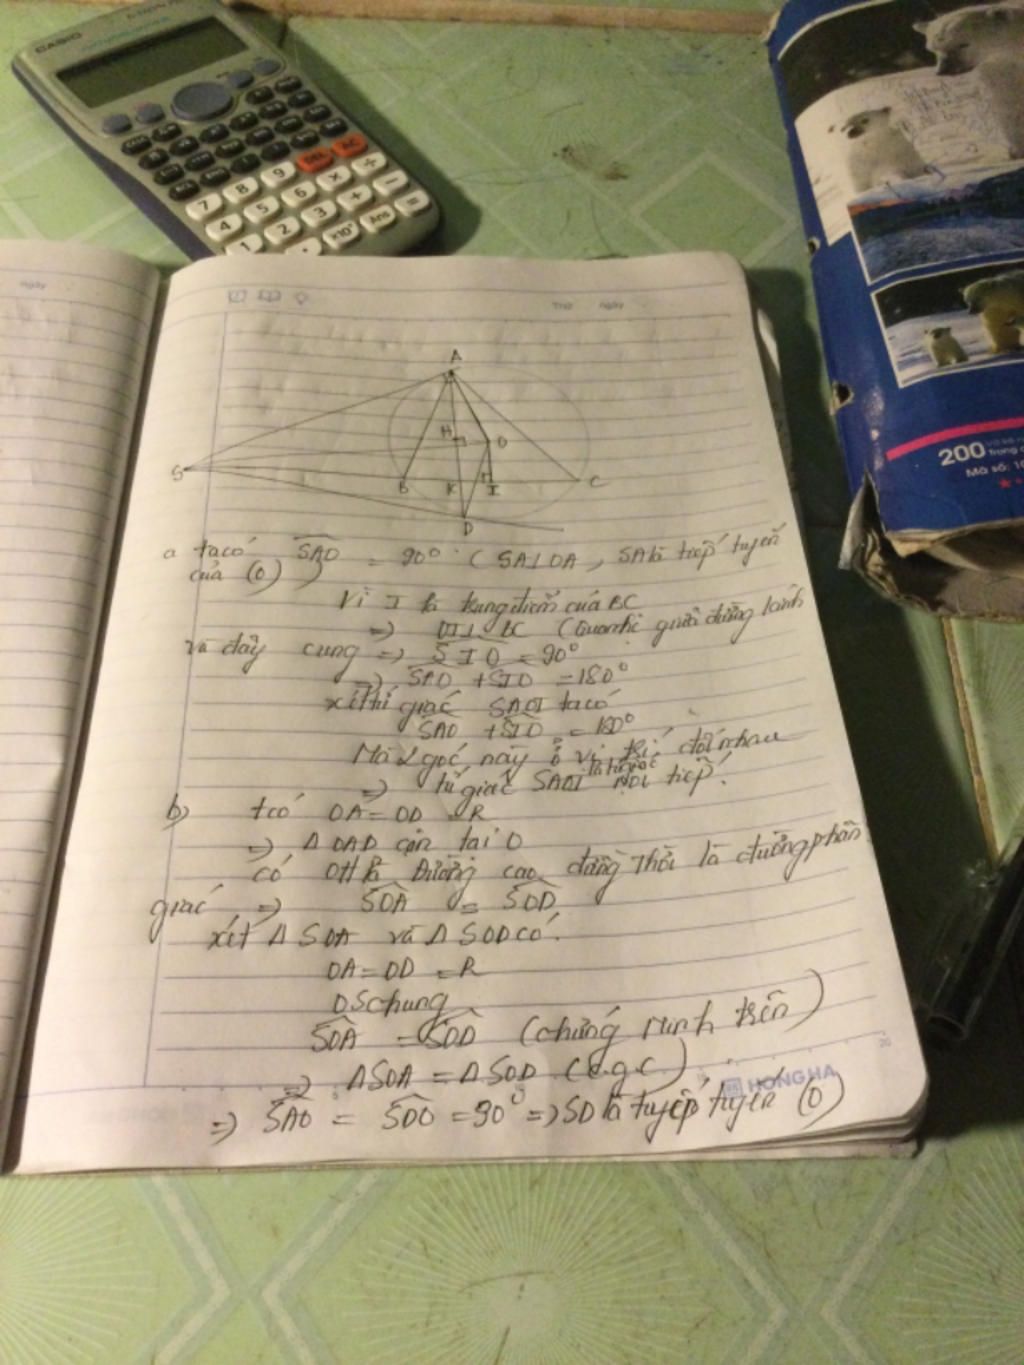 CASIO
DEL AC
7 8 9
4 5 6 × ÷
1 2 3 + −
. ×10ˣ Ans =
ngày
Thứ ngày
A
H
O
S
B K I C
D
a ta có SAO = 90° (SA⊥OA, SA là tiếp tuyến
của (O))
Vì I là trung điểm của BC
=> OI⊥BC (Quan hệ giữa đường kính
và dây cung => SIO = 90°
=> SAO + SIO = 180°
xét tứ giác SAOI ta có
SAO + SIO = 180°
Mà 2 góc này ở vị trí đối nhau
=> tứ giác SAOI là tứ giác Nội tiếp.
b) t có OA = OD = R
=> Δ OAD cân tại O
có OH là Đường cao đồng thời là đường phân
giác => SOA = SOD
xét Δ SOA và Δ SOD có.
OA = OD = R
OS chung
SOA = SOD (chứng minh trên)
=> ΔSOA = ΔSOD (c.g.c)
HONG HA
=> SAO = SDO = 90° => SD là tuyếp tuyến (O)
200
Trang
Mã số: 10